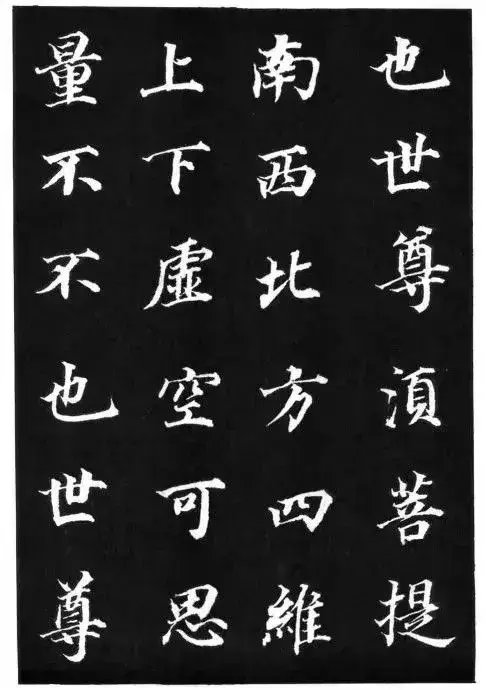 也世尊湏菩提
南西北方四維
上下虛空可思
量不不也世尊